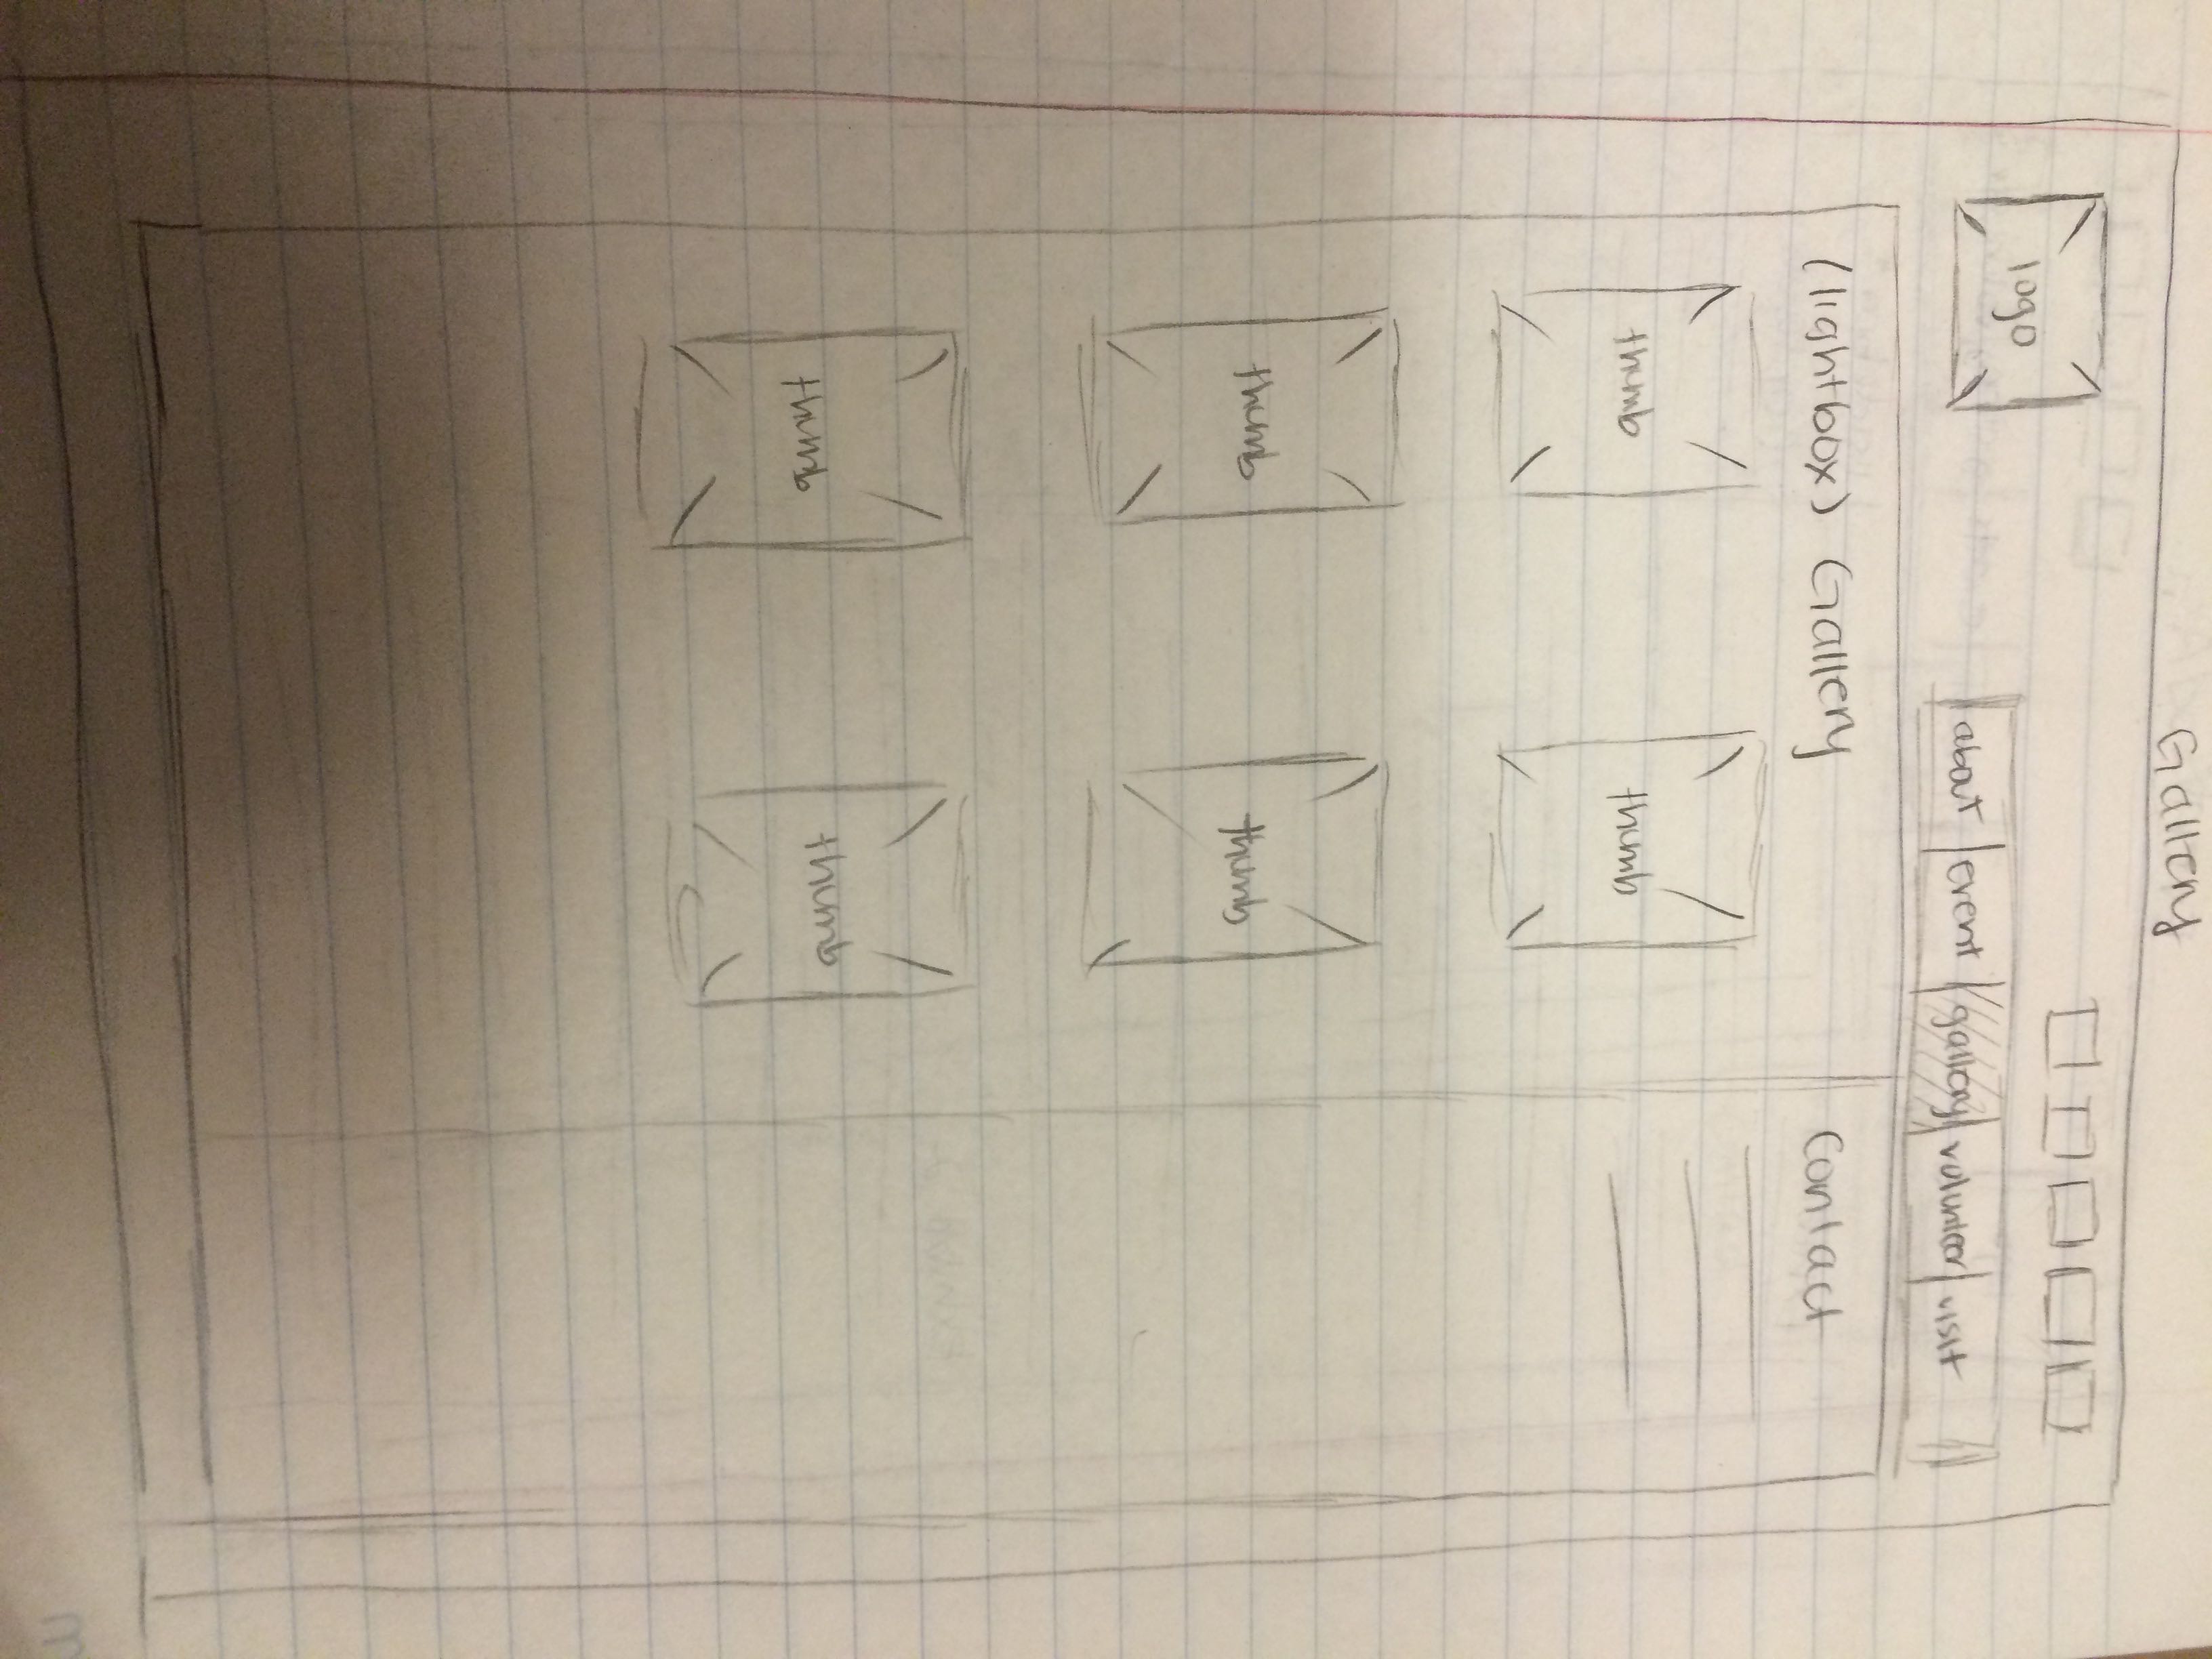 Gallery
logo
about event gallery volunteer visit
(lightbox) Gallery
Contact
thumb thumb
thumb thumb
thumb thumb